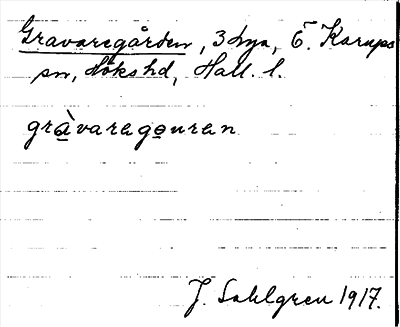 Gravaregården, 3 hgn, Ö. Karups
sn, Höks hd, Hall. l.
gràvaragǫuran
J. Sahlgren 1917.